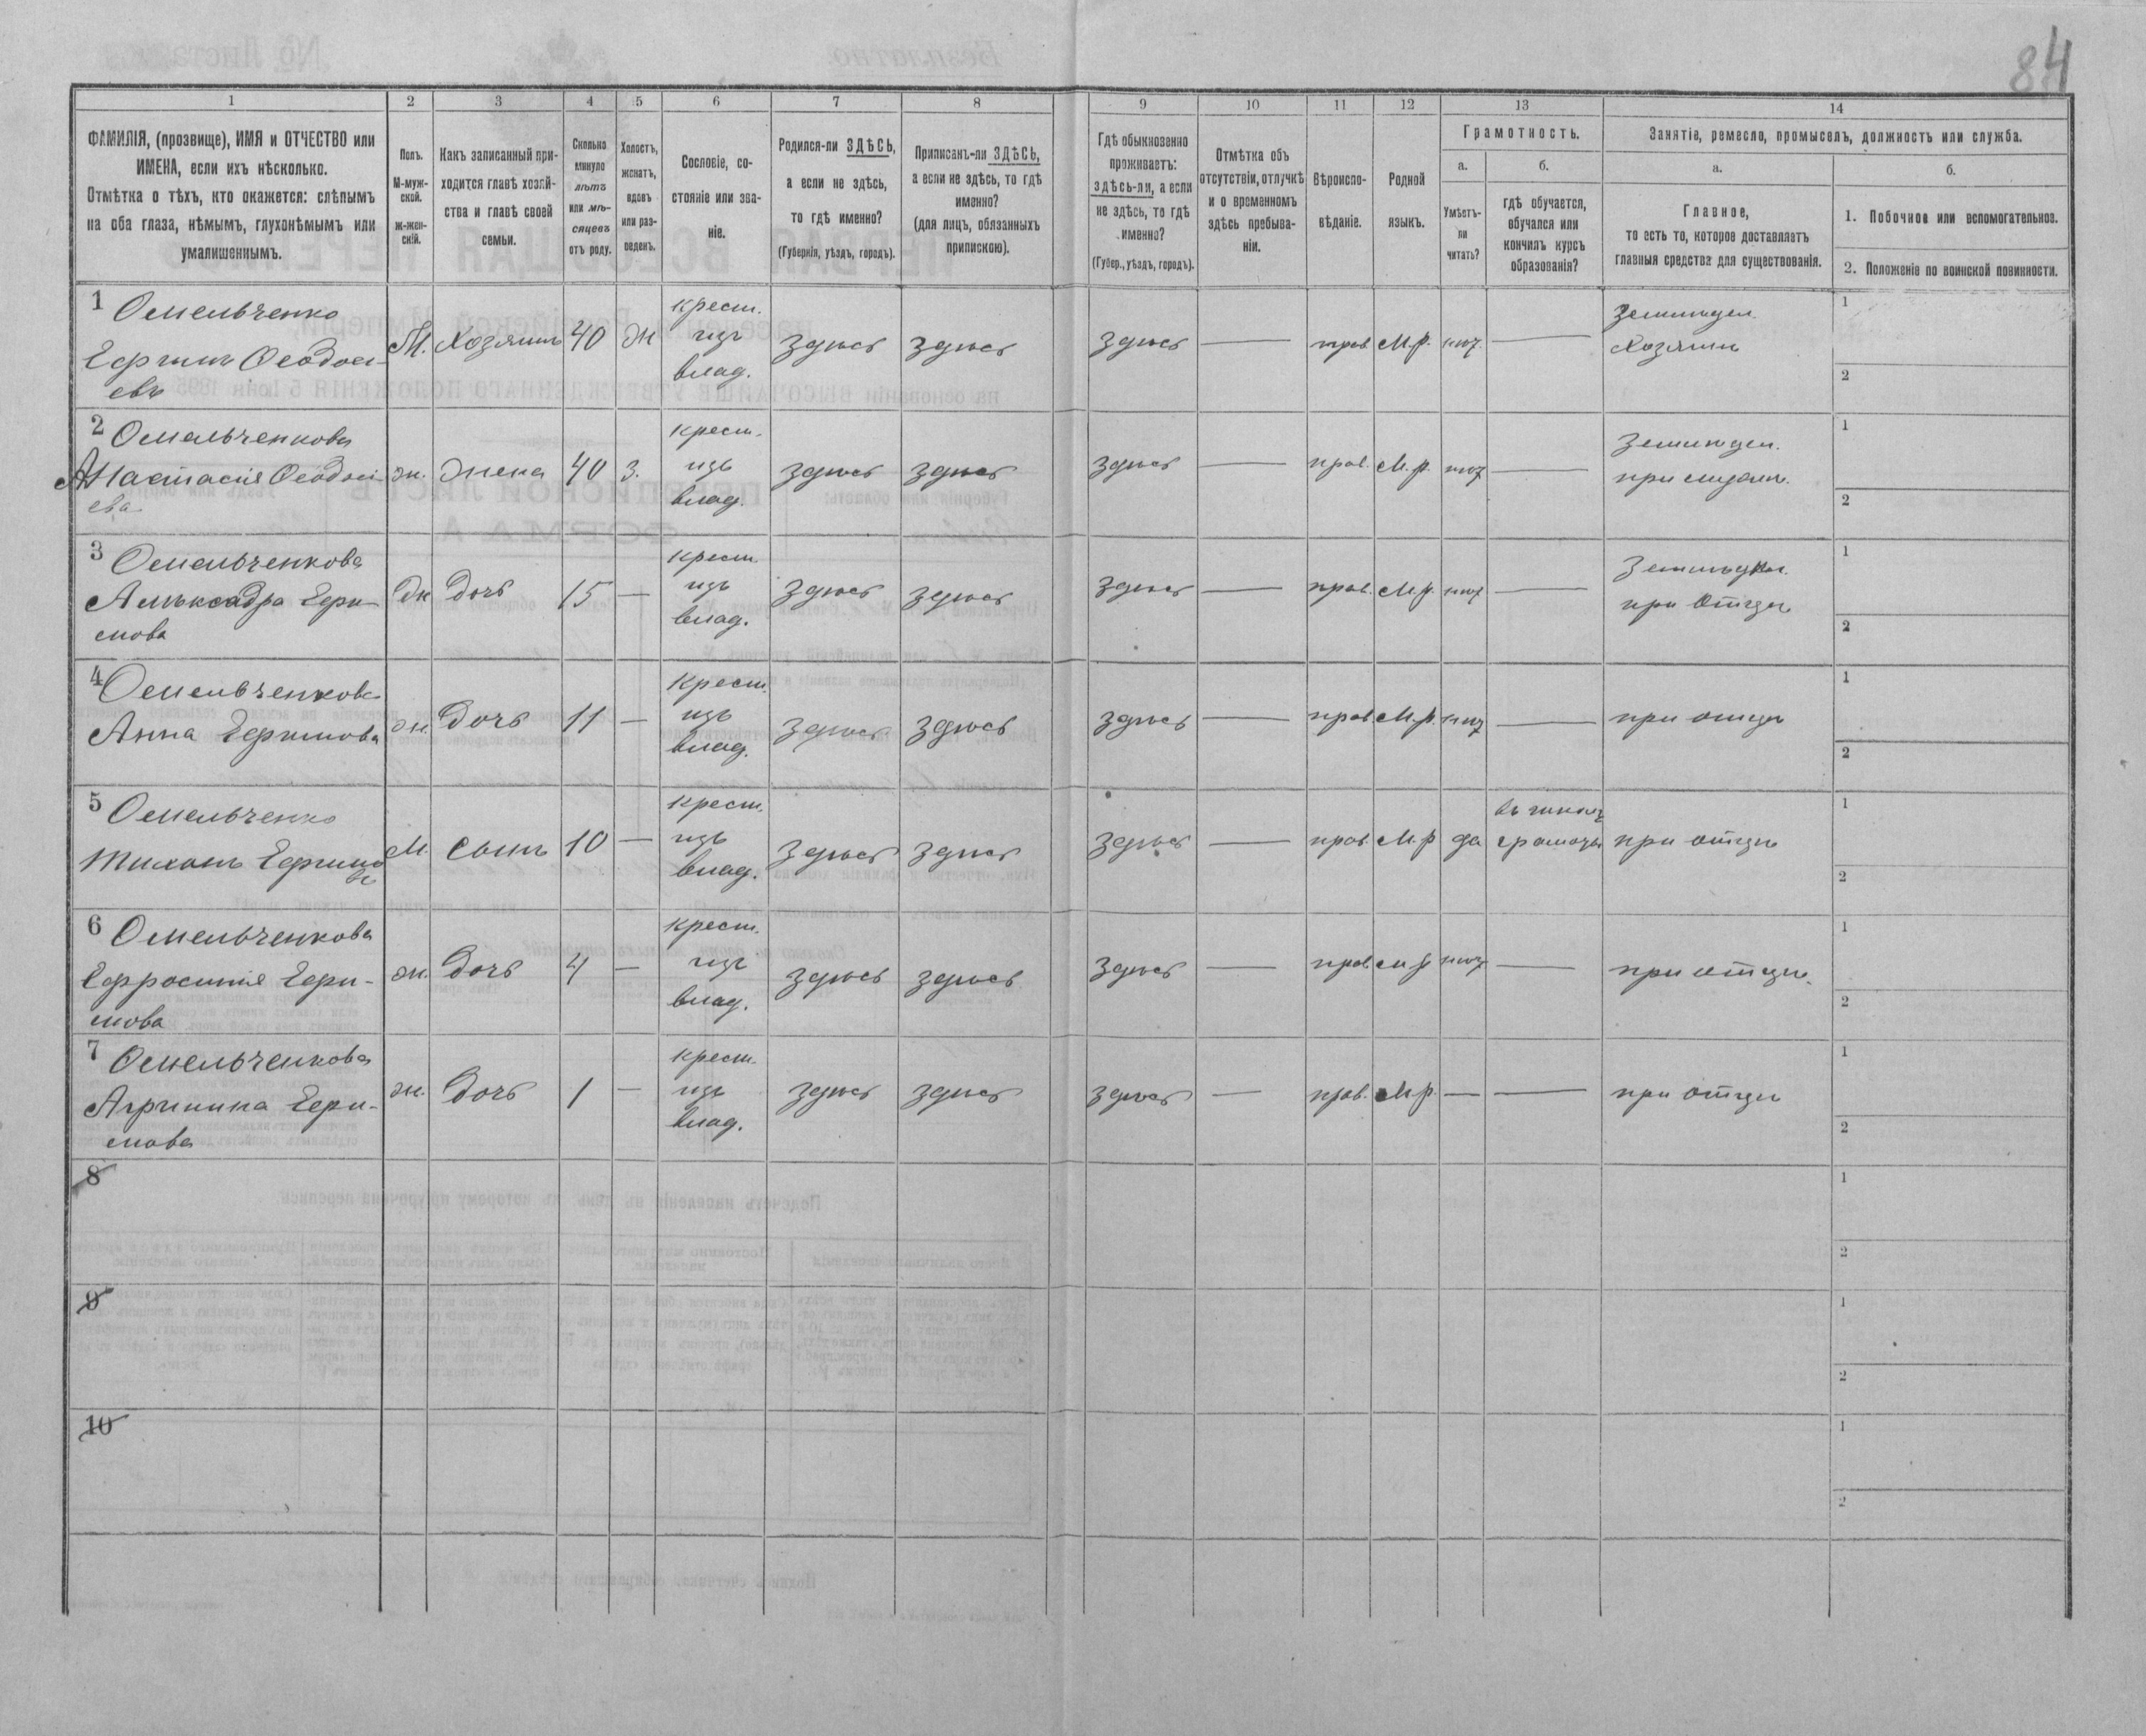 84
1 2 3 4 5 6 7 8 9 10 11 12 13 14
ФАМИЛІЯ, (прозвище), ИМЯ и ОТЧЕСТВО или
ИМЕНА, если ихъ нѣсколько.
Отмѣтка о тѣхъ, кто окажется: слѣпымъ
на оба глаза, нѣмымъ, глухонѣмымъ или
умалишеннымъ.
Полъ.
М-муж-
ской.
ж-жен-
скій.
Какъ записанный при-
ходится главѣ хозяй-
ства и главѣ своей
семьи.
Сколько
минуло
лѣтъ
или мѣ-
сяцевъ
отъ роду.
Холостъ,
женатъ,
вдовъ
или раз-
веденъ.
Сословіе, со-
стояніе или зва-
ніе.
Родился-ли ЗДѢСЬ,
а если не здѣсь,
то гдѣ именно?
(Губернія, уѣздъ, городъ).
Приписанъ-ли ЗДѢСЬ,
а если не здѣсь, то гдѣ
именно?
(для лицъ, обязанныхъ
припискою).
Гдѣ обыкновенно
проживаетъ:
здѣсь-ли, а если
не здѣсь, то гдѣ
именно?
(Губер., уѣздъ, городъ).
Отмѣтка объ
отсутствіи, отлучкѣ
и о временномъ
здѣсь пребыва-
ніи.
Вѣроиспо-
вѣданіе.
Родной
языкъ.
Грамотность.
а.
Умѣетъ-
ли
читать?
б.
гдѣ обучается,
обучался или
кончилъ курсъ
образованія?
Занятіе, ремесло, промыселъ, должность или служба.
а.
Главное,
то есть то, которое доставляетъ
главныя средства для существованія.
б.
1. Побочное или вспомогательное.
2. Положеніе по воинской повинности.
1 Омельченко
Ефимъ Ѳеодосі-
евъ
М. Хозяинъ 40 ж
крест.
изъ
влад.
здѣсь здѣсь здѣсь — прав. М.р. нѣт. —
Земледел.
Хозяинъ
1
2
2 Омельченкова
Анастасія Ѳеодосі-
ева
ж. жена 40 з.
крест.
изъ
влад.
здѣсь здѣсь здѣсь — прав. М.р. нѣт —
Земледел.
при мужѣ.
1
2
3 Омельченкова
Александра Ефи-
мова
ж дочь 15 —
крест.
изъ
влад.
здѣсь здѣсь здѣсь — прав. М.р. нѣт —
Земледел.
при отцѣ
1
2
4 Омельченкова
Анна Ефимова
ж. дочь 11 —
крест.
изъ
влад.
здѣсь здѣсь здѣсь — прав М.р. нѣт — при отцѣ
1
2
5 Омельченко
Тихонъ Ефимов
М. сынъ 10 —
крест.
изъ
влад.
здѣсь здѣсь здѣсь — прав. М.р да
въ школѣ
грамоты
при отцѣ
1
2
6 Омельченкова
Ефросинія Ефи-
мова
ж. дочь 4 —
крест.
изъ
влад.
здѣсь здѣсь здѣсь — прав. м.р нѣт — при отцѣ.
1
2
7 Омельченкова
Агрипина Ефи-
мова
ж. дочь 1 —
крест.
изъ
влад.
здѣсь здѣсь здѣсь — прав. М.р. — — при отцѣ
1
2
8
1
2
9
1
2
10
1
2